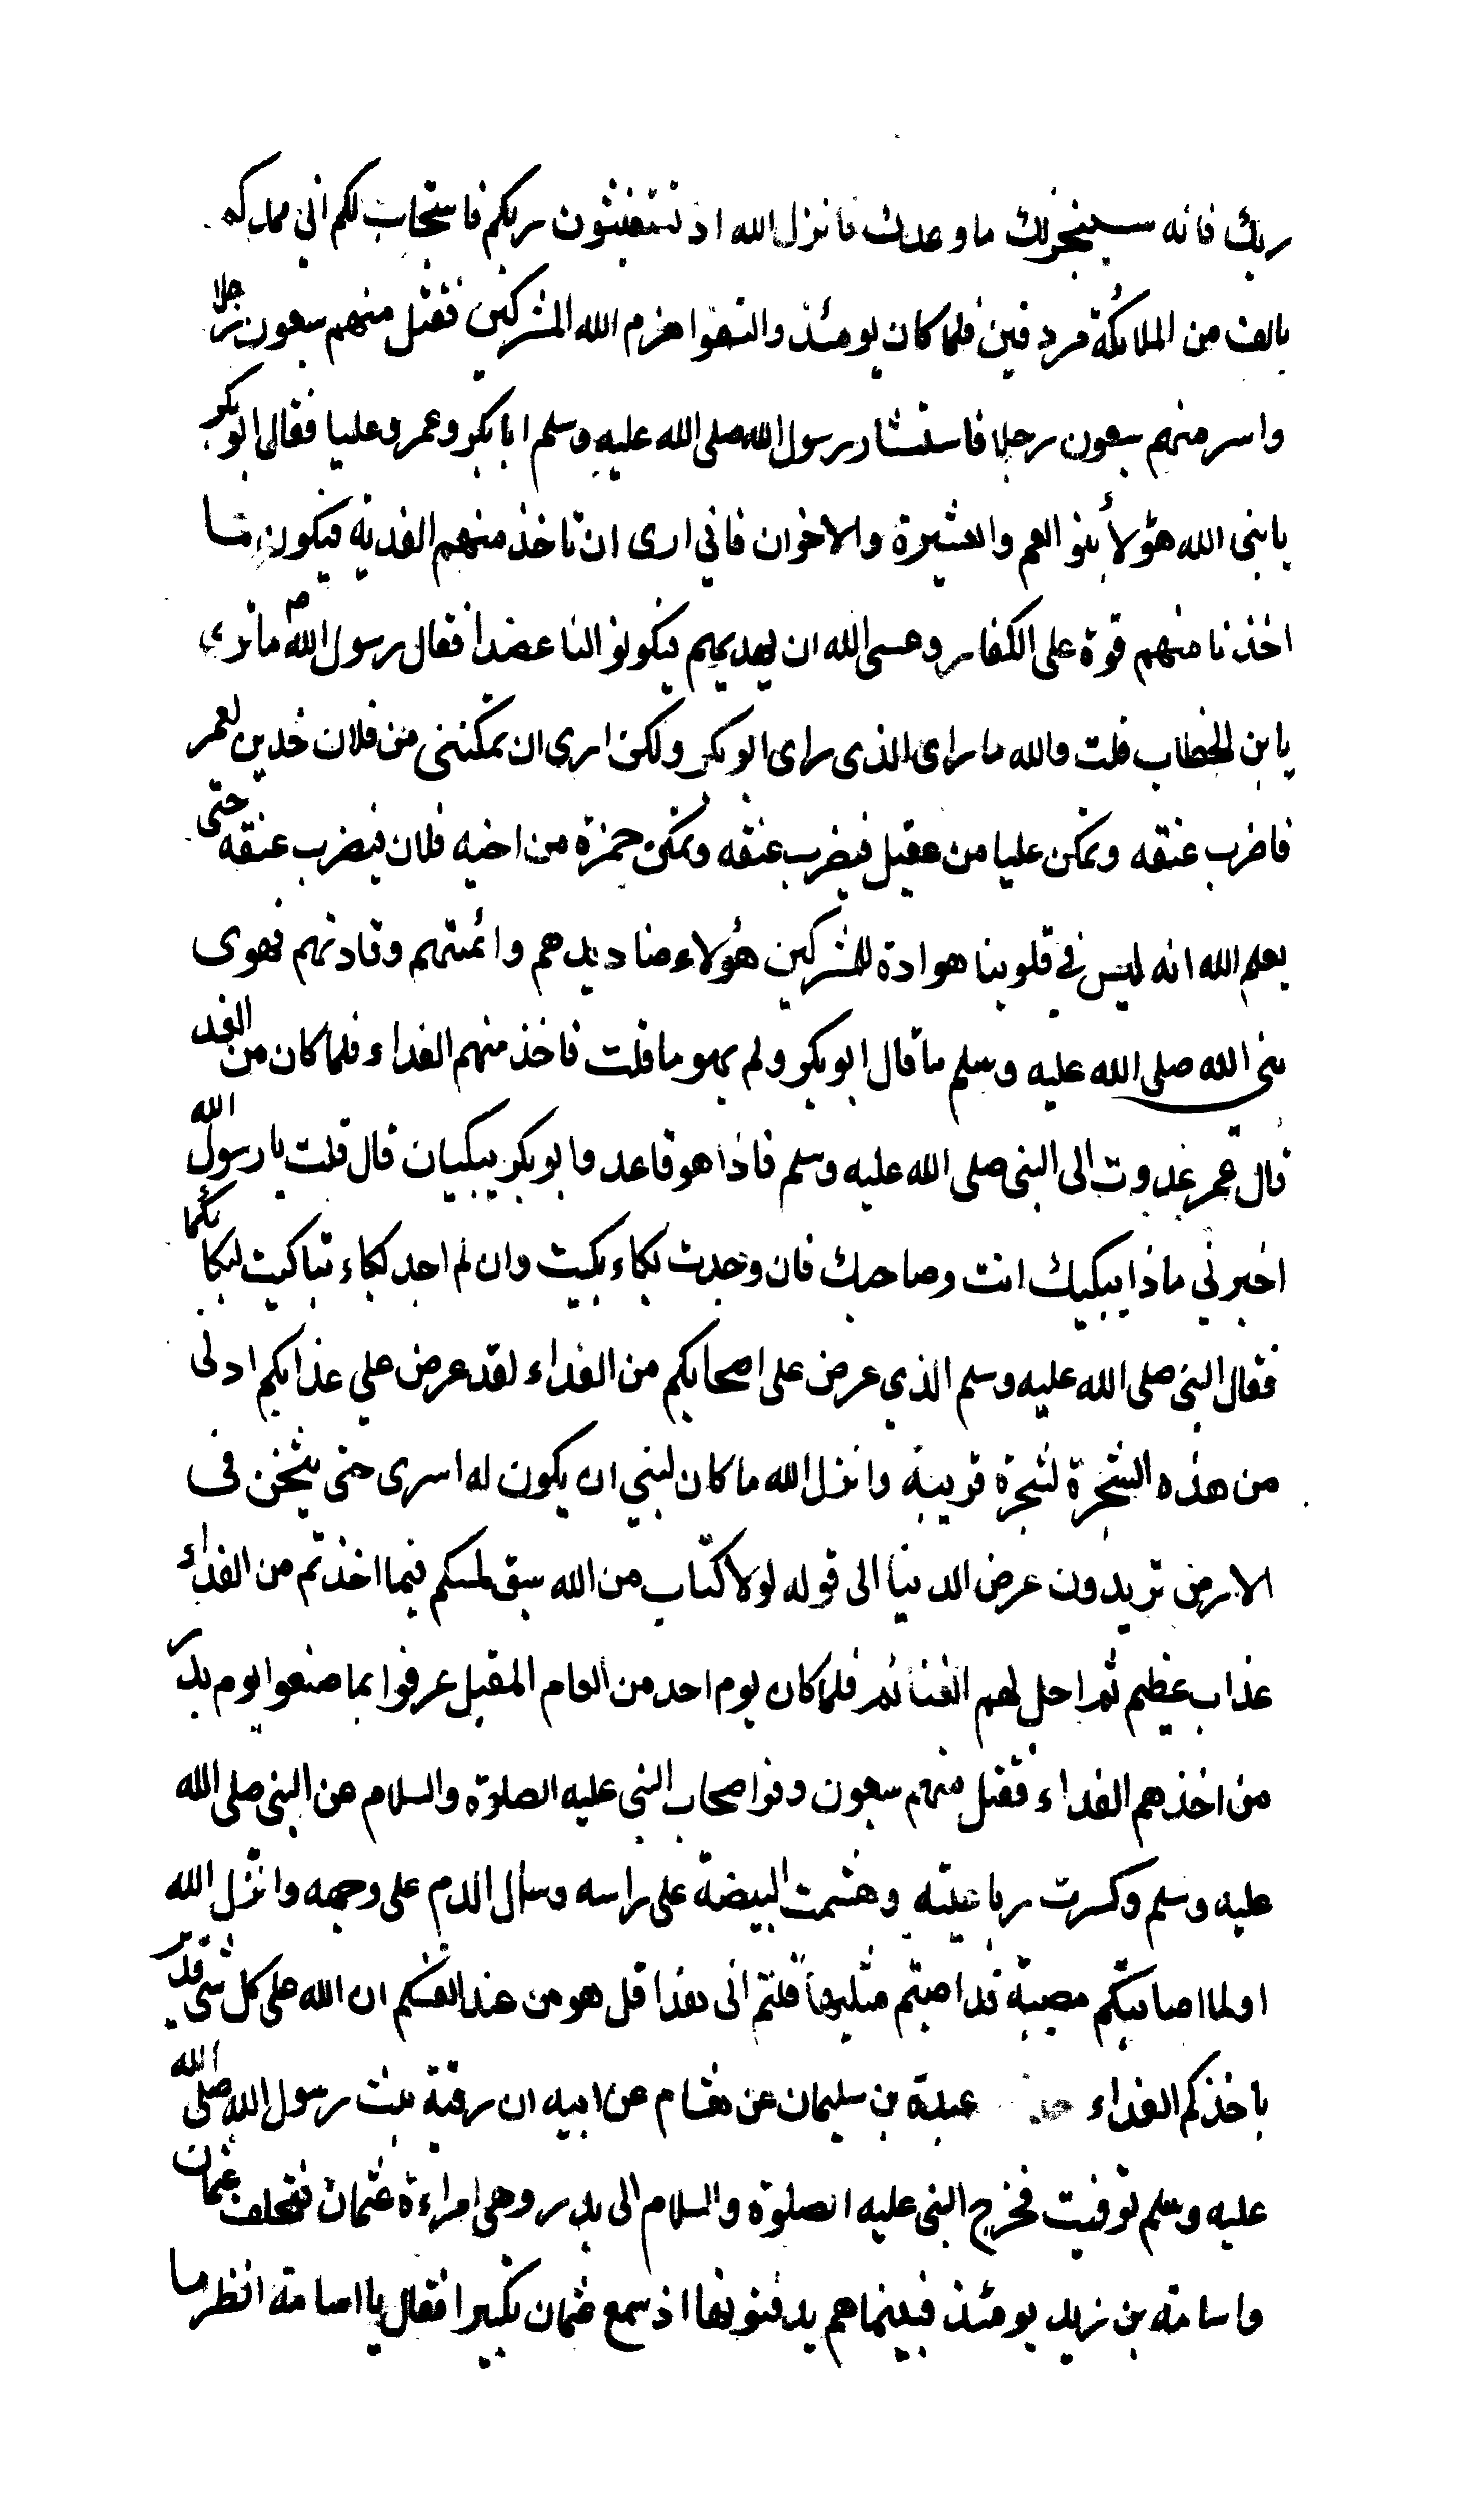 ربك فانه سينجز لك ما وعدك فانزل الله اذ تستغيثون ربكم فاستجاب لكم اني ممدكم
بالف من الملائكة مردفين فلما كان يومئذ والتقوا هزم الله المشركين فقتل منهم سبعون رجلا
واسر منهم سبعون رجلا فاستشار رسول الله صلى الله عليه وسلم ابا بكر وعمر وعليا فقال ابو بكر
يا نبي الله هؤلاء بنو العم والعشيرة والاخوان فاني ارى ان تاخذ منهم الفدية فيكون ما
اخذنا منهم قوة على الكفار وعسى الله ان يهديهم فيكونو النا عضدا فقال رسول الله ص ما ترى
يا ابن الخطاب قلت والله ما راى الذي راى ابو بكر ولكن ارى ان تمكنني من فلان خدين لعمر
فاضرب عنقه وتمكن عليا من عقيل فيضرب عنقه وتمكن حمزة من اخيه فلان فيضرب عنقه حتى
يعلم الله انه ليس في قلوبنا هوادة للمشركين هؤلاء صناديدهم وائمتهم وقادتهم فهوى
نبي الله صلى الله عليه وسلم ما قال ابو بكر ولم يهو ما قلت فاخذ منهم الفداء فلما كان من الغد
قال عمر غدوت الى النبي صلى الله عليه وسلم فاذا هو قاعد وابو بكر يبكيان قال قلت يا رسول الله
اخبرني ماذا يبكيك انت وصاحبك فان وجدت بكاء بكيت وان لم اجد بكاء تباكيت لبكائكما
فقال النبي صلى الله عليه وسلم الذي عرض على اصحابكم من الفداء لقد عرض علي عذابكم ادنى
من هذه الشجرة لشجرة قريبة وانزل الله ما كان لنبي ان يكون له اسرى حتى يثخن في
الارض تريدون عرض الدنيا الى قوله لولا كتاب من الله سبق لمسكم فيما اخذتم من الفداء
عذاب عظيم ثم احل لهم الغنائم فلما كان يوم احد من العام المقبل عرفوا بما صنعوا يوم بدر
من اخذهم الفداء فقتل منهم سبعون وفر اصحاب النبي عليه الصلوة والسلام عن النبي صلى الله
عليه وسلم وكسرت رباعيته وهشمت البيضة على راسه وسال الدم على وجهه وانزل الله
اولما اصابتكم مصيبة قد اصبتم مثليها قلتم انى هذا قل هو من عند انفسكم ان الله على كل شي قدير
باخذكم الفداء عبدة بن سليمان عن هشام عن ابيه ان رقية بنت رسول الله صلى الله
عليه وسلم توفيت فخرج النبي عليه الصلوة والسلام الى بدر وهي امراءة عثمان فتخلف عثمان
واسامة بن زيد يومئذ فبينما هم يدفنونها اذ سمع عثمان تكبيرا فقال يا اسامة انظر ما